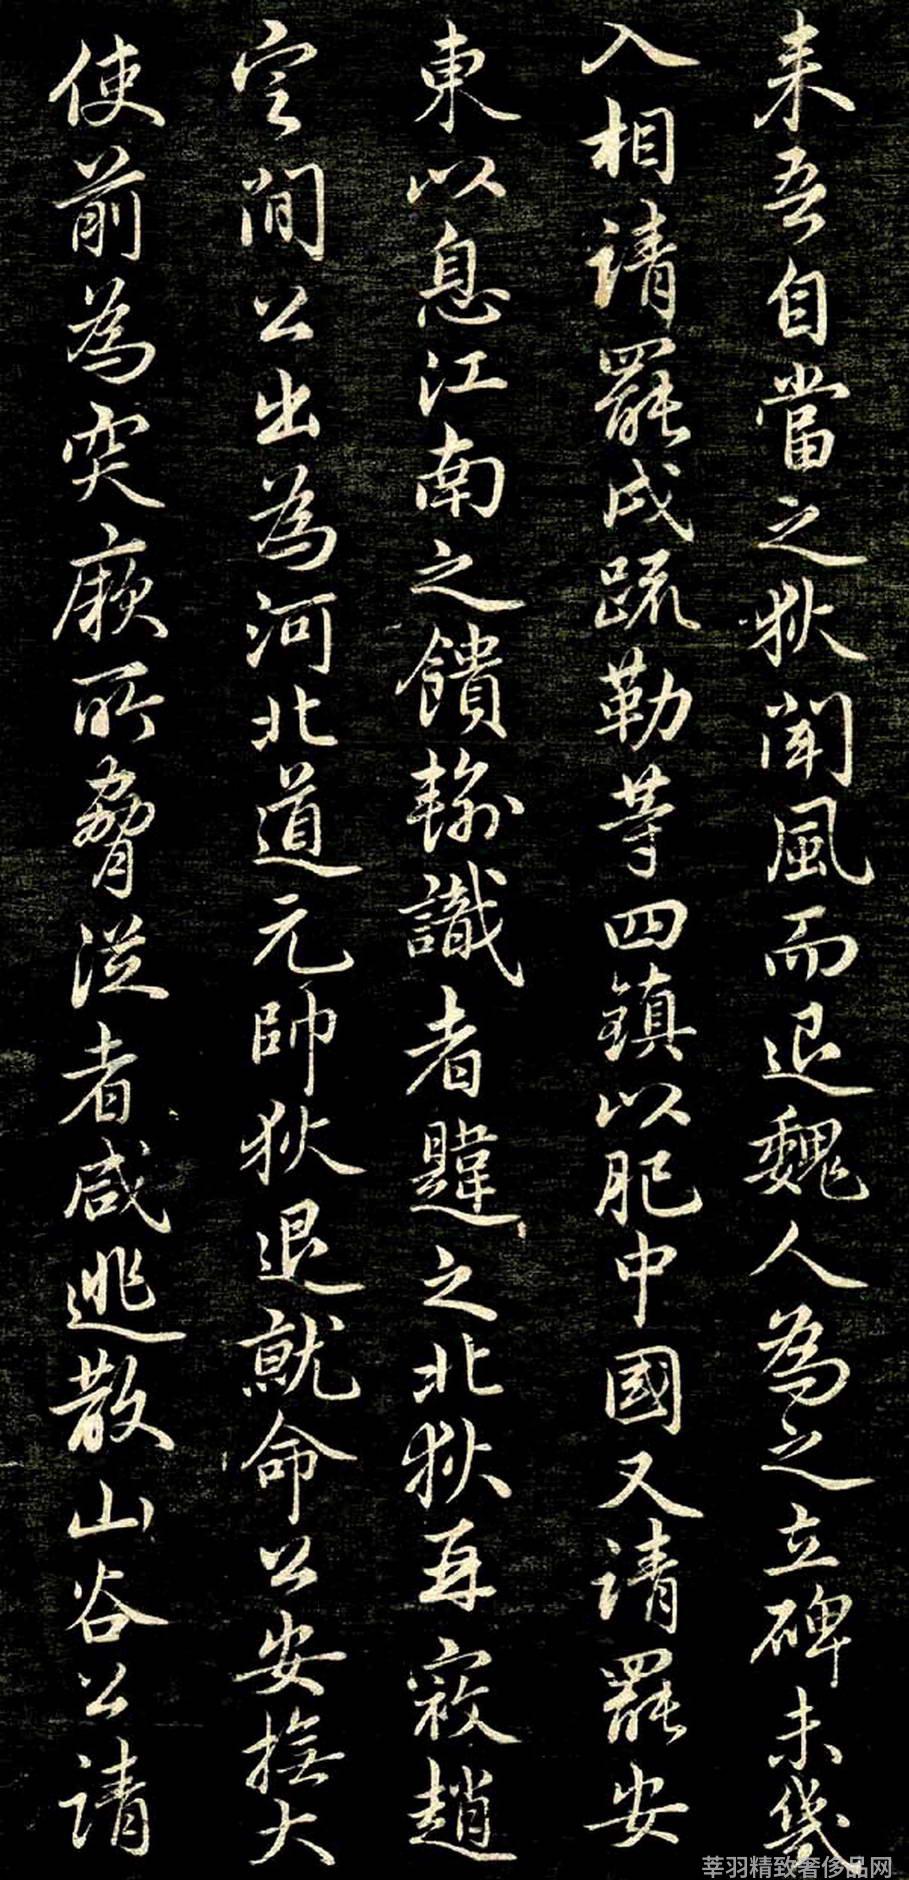 来吾自當之狄聞風而退魏人為之立碑未幾
入相請罷戍疏勒等四鎮以肥中國又請罷安
東以息江南之饋輸識者韙之北狄再寇趙
定間公出為河北道元帥狄退就命公安撫大
使前為突厥所脅從者咸逃散山谷公請
莘羽精致奢侈品网